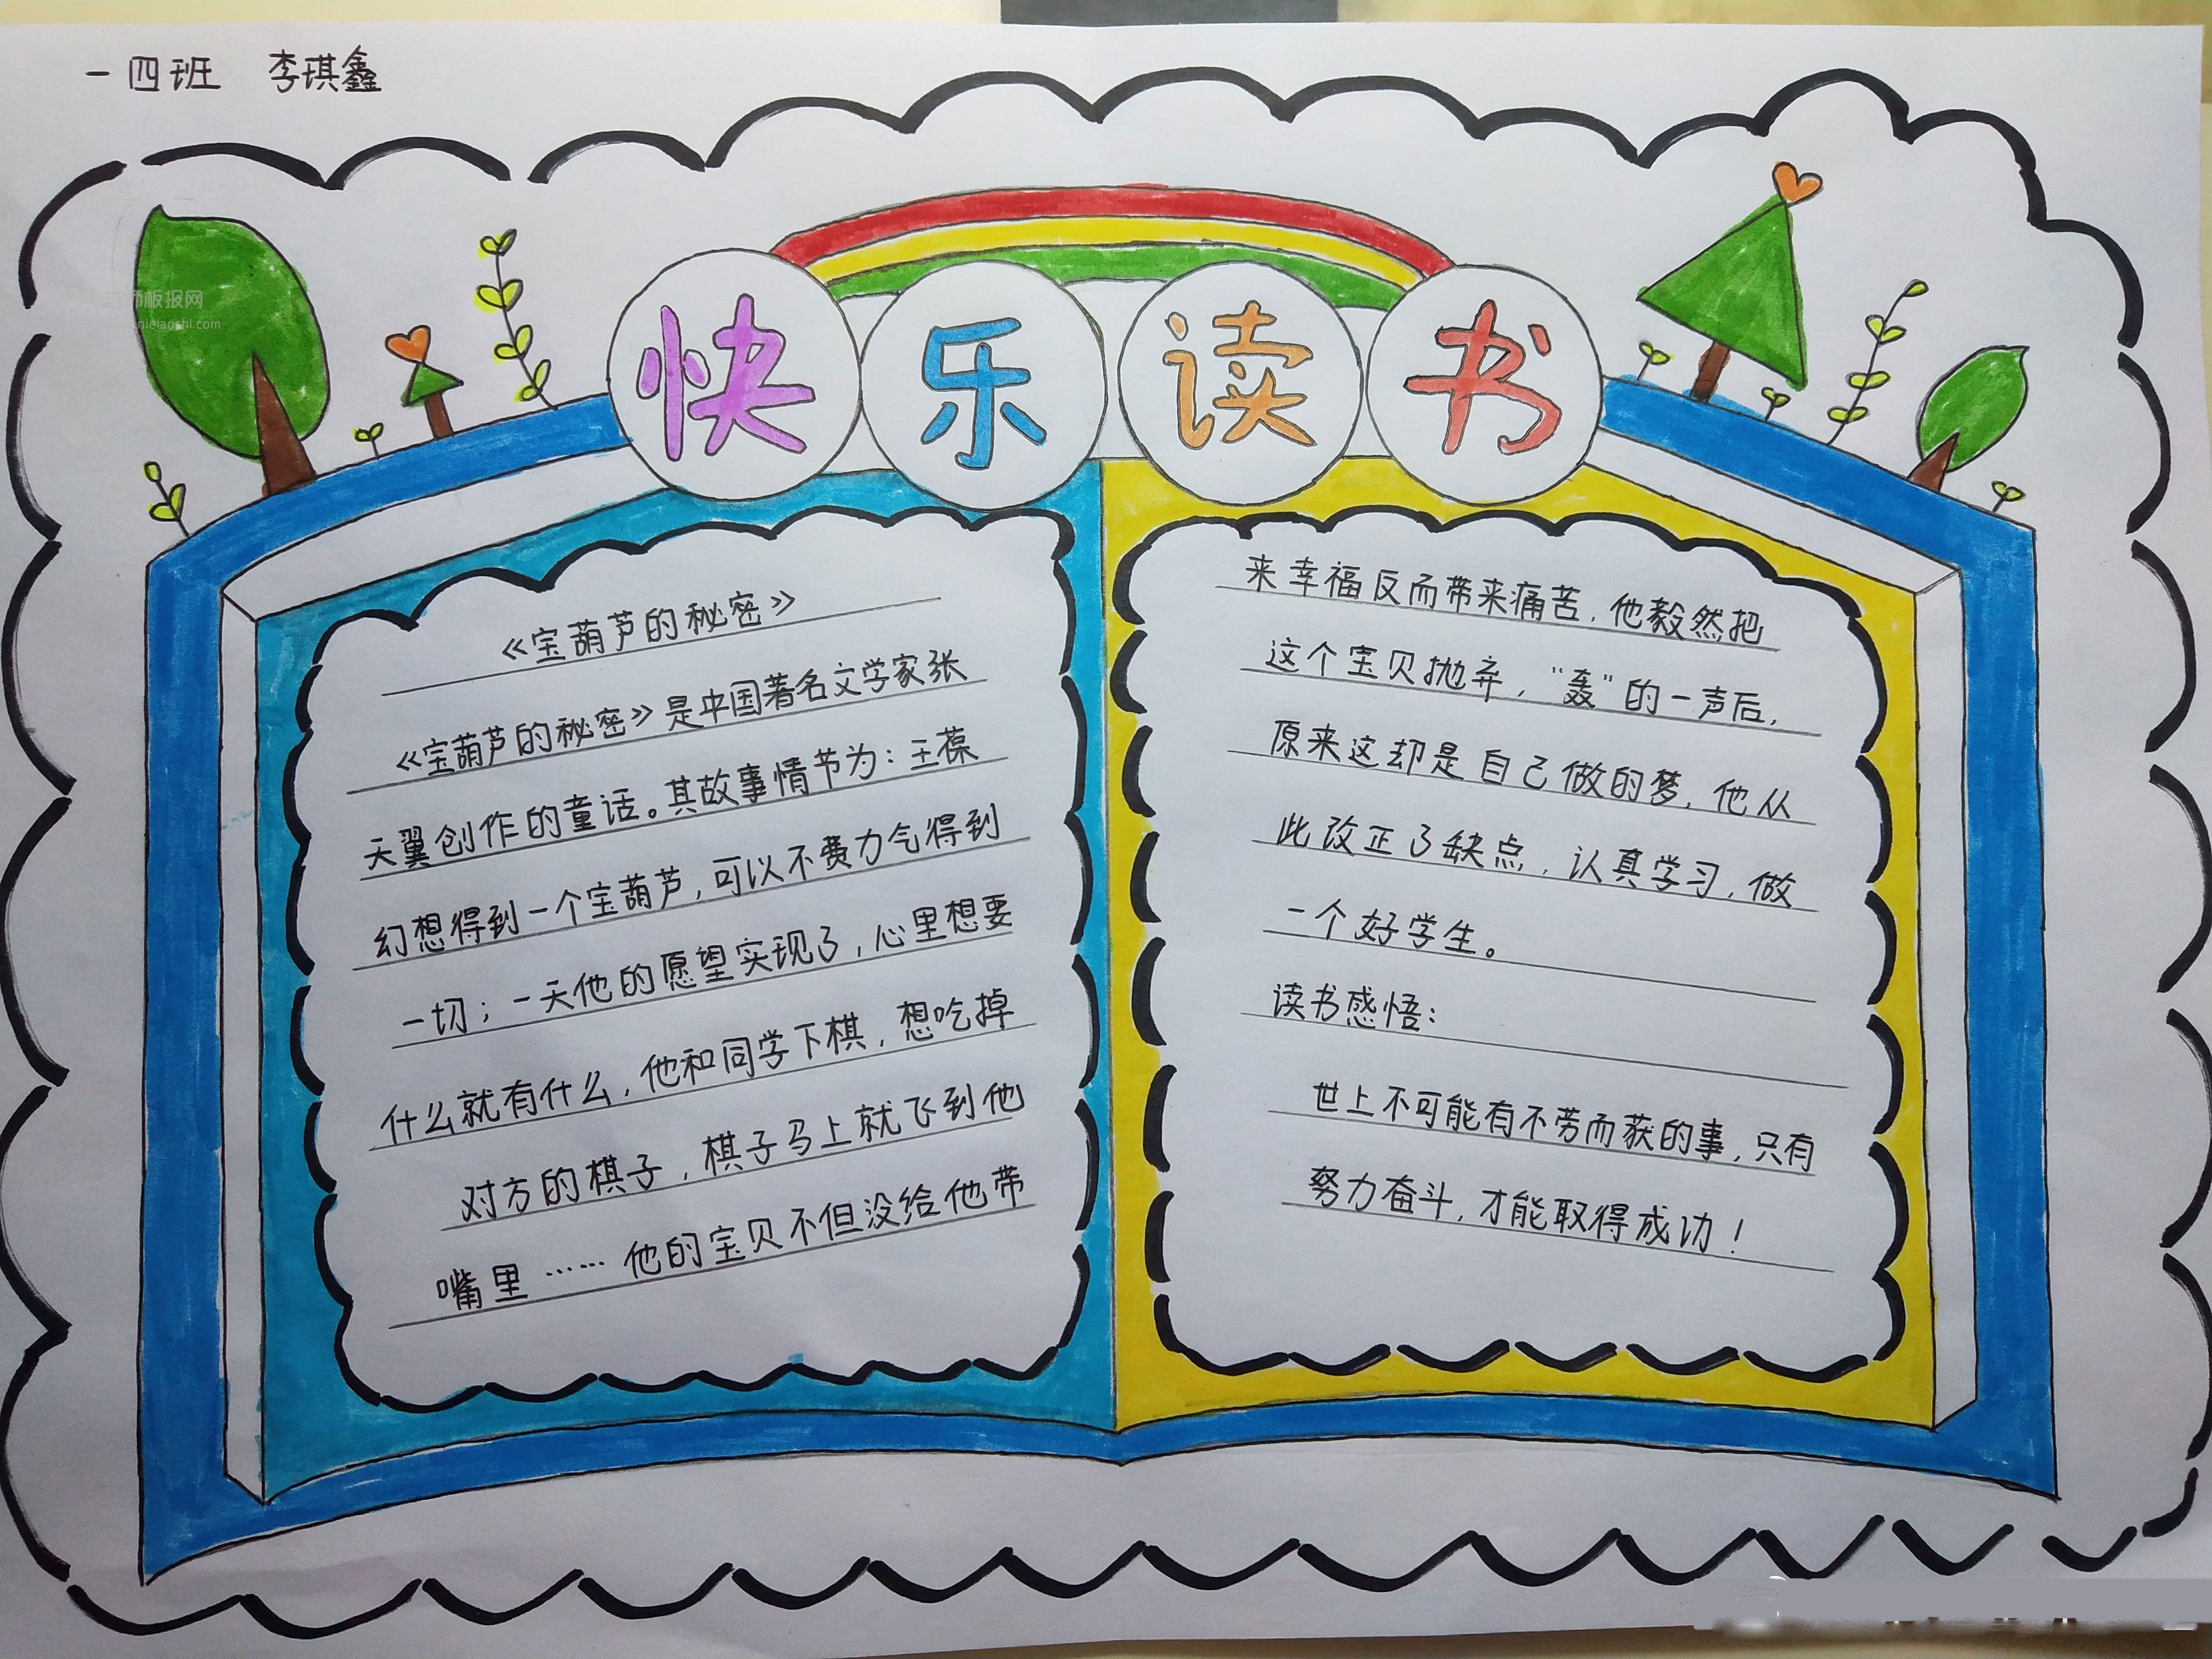 一四班 李琪鑫
快乐读书
《宝葫芦的秘密》
《宝葫芦的秘密》是中国著名文学家张
天翼创作的童话。其故事情节为：王葆
幻想得到一个宝葫芦，可以不费力气得到
一切；一天他的愿望实现了，心里想要
什么就有什么，他和同学下棋，想吃掉
对方的棋子，棋子马上就飞到他
嘴里……他的宝贝不但没给他带
来幸福反而带来痛苦，他毅然把
这个宝贝抛弃，“轰”的一声后，
原来这却是自己做的梦，他从
此改正了缺点，认真学习，做
一个好学生。
读书感悟：
世上不可能有不劳而获的事，只有
努力奋斗，才能取得成功！
师板报网